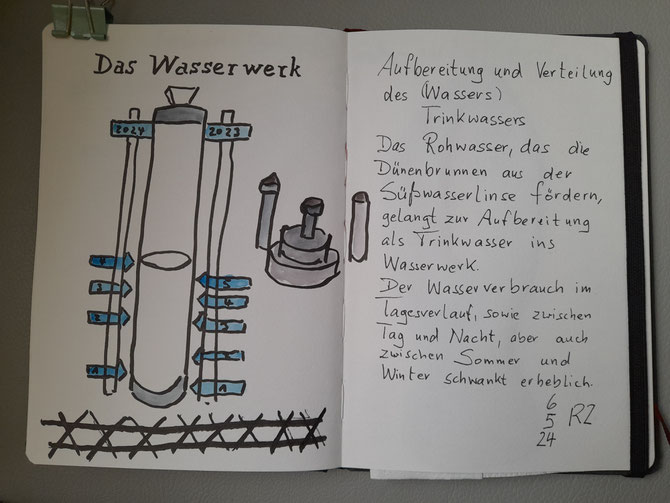 Das Wasserwerk
2024
2023
3
2
1
5
4
3
1
Aufbereitung und Verteilung
des (Wassers)
Trinkwassers
Das Rohwasser, das die
Dünenbrunnen aus der
Süßwasserlinse fördern,
gelangt zur Aufbereitung
als Trinkwasser ins
Wasserwerk.
Der Wasserverbrauch im
Tagesverlauf, sowie zwischen
Tag und Nacht, aber auch
zwischen Sommer und
Winter schwankt erheblich.
6
5
24
RZ